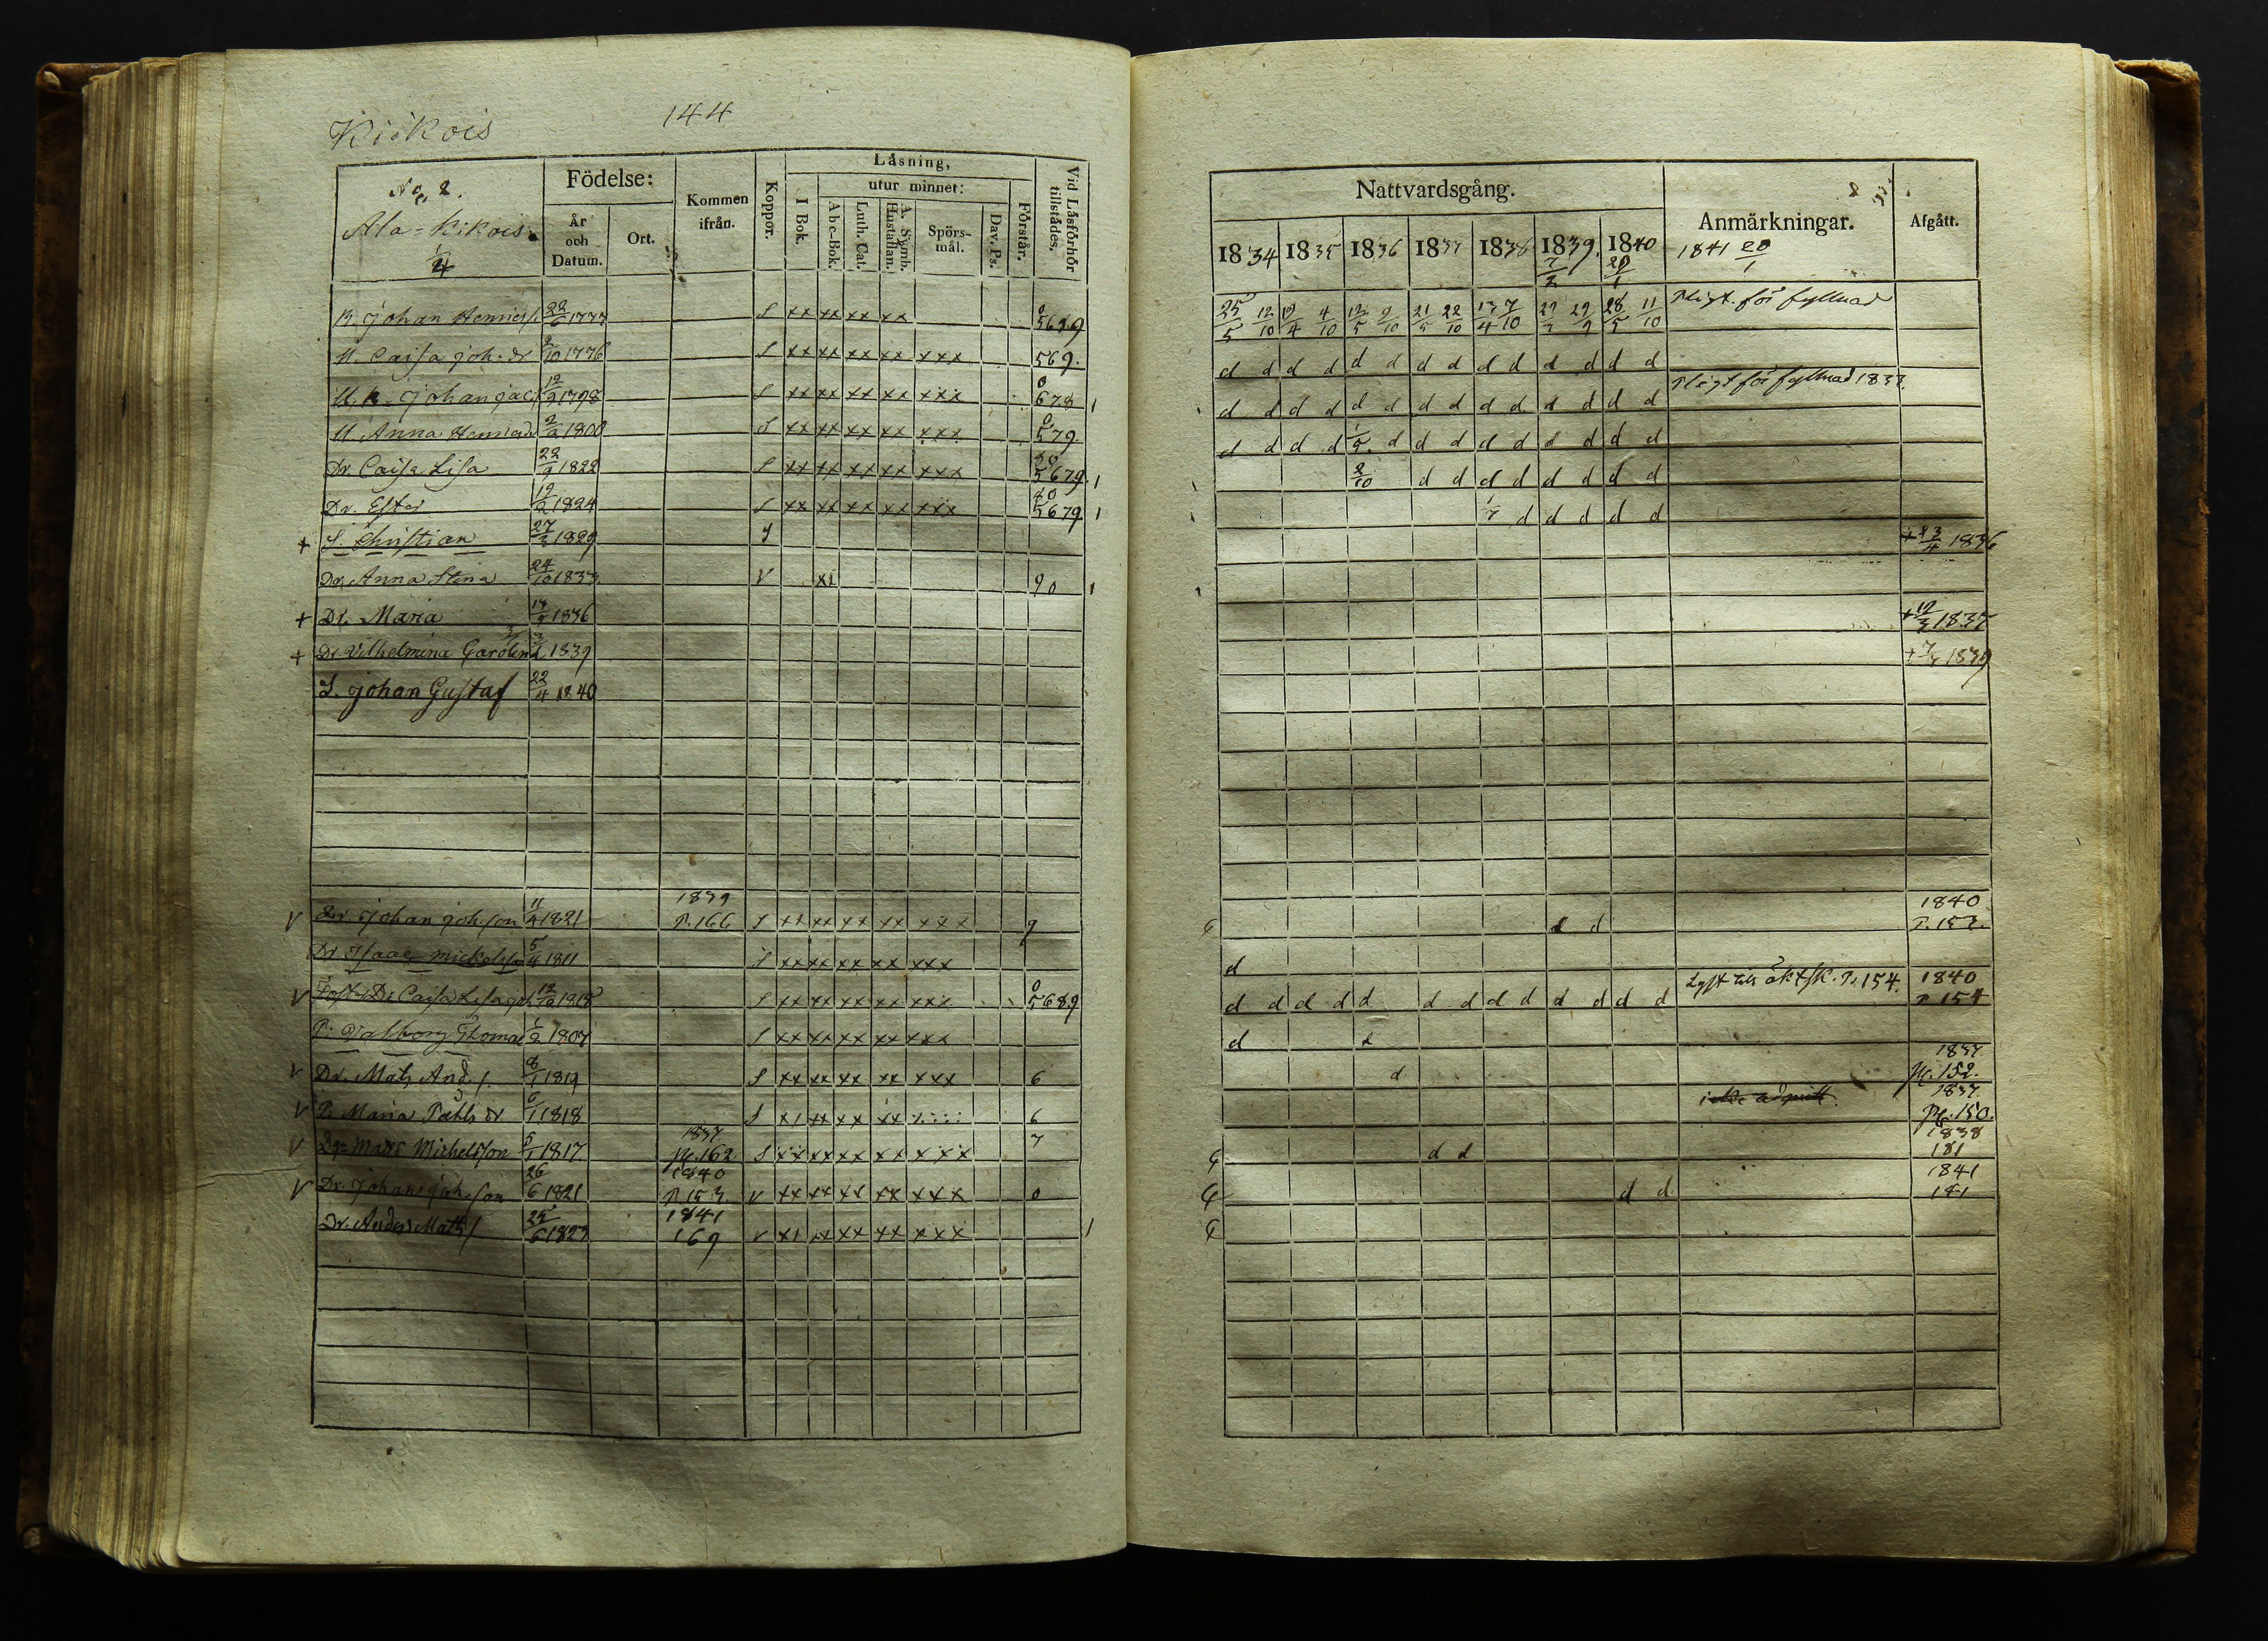 Kiikois 144
No 2.
Ala=Kikois
Födelse:
År och Datum.
Ort.
Kommen ifrån.
Koppor.
Låsning,
I Bok.
utur minnet:
Abc-Bok.
Luth. Cat.
A. Symb. Hustaflan.
Spörs-mål.
Dav. Ps.
Förstår.
Vid Låsförhör tillstådes.
B. Johan Henricss. 22/6 1777 S xx xx xx xx
M. Caisa Joh. dr 2/10 1776 S xx xx xx xx xxx 569.
M. B. Johan Jac. 12/2 1798 S xx xx xx xx xxx 0 678 1
M Anna Henricsdr 2/2 1800 S xx xx xx xx xxx 0 579.
Dr. Caisa Lisa 22/9 1822 S xx xx xx xx xxx 5679. 1
Dr. Ester 19/2 1824 S xx xx xx xx xxx 5679 1
+ S. Christian 27/3 1829
Dr. Anna Stina 24/10 1833. V x1 90 1
+ Dr. Maria 1836
+ Dr. Vilhelmina Carolina 1839
S. Johan Gustaf 22/4 1840
1839
V Dr. Johan Joh:son 11/4 1821 P. 166 S xx xx xx xx xxx 9
Dr. Isaac Mickelsson 5/4 1811 S xx xx xx xx xxx
V Fost. Dr Caisa Lisa S xx xx xx xx xxx 0 5689
P. Valborg Thomae 1/2 1807 S xx xx xx xx xxx
V Dr. Mats And. s. 8/1 1819 S xx xx xx xx xxx 6
V P. Maria Pahls dr 6/1 1818 S x1 xx xx xx 6
1837
V Dr. Mats Michelsson 5/1 1817 Pg. 162 S xx xx xx xx xxx 7
1840
V Dr. Johan Joh:son 26/6 1821 P. 153 V xx xx xx xx xxx 0
1841
Dr. Anders Matts s. 25/6 1823 169 V x1 xx xx xx xxx 1
Nattvardsgång.
Anmärkningar.
Afgått.
1834 1835 1836 1837 1838 1839 1840 1841 20/1
7/2 20/1
25/5 12/10 4/10 9/10 21/5 22/10 7/10 28/5 11/10 Pligt. för fyllnad
d d d d d d d d d d d d d d
d d d d d d d d d d d d d d Pligt för fyllnad 1837.
d d d d d d d d d d d d d
2/10 d d d d d d d d
d d d d d
+ 1836
+ 12/3 1837
+ 1839
1840
d d P. 153.
d
d d d d d d d d d d d d d Lyst till äktsk. P. 154. 1840
P 154
d d
1837
d Pg. 152.
1837.
Pg. 150.
1838
d d 181
1841
d d 181